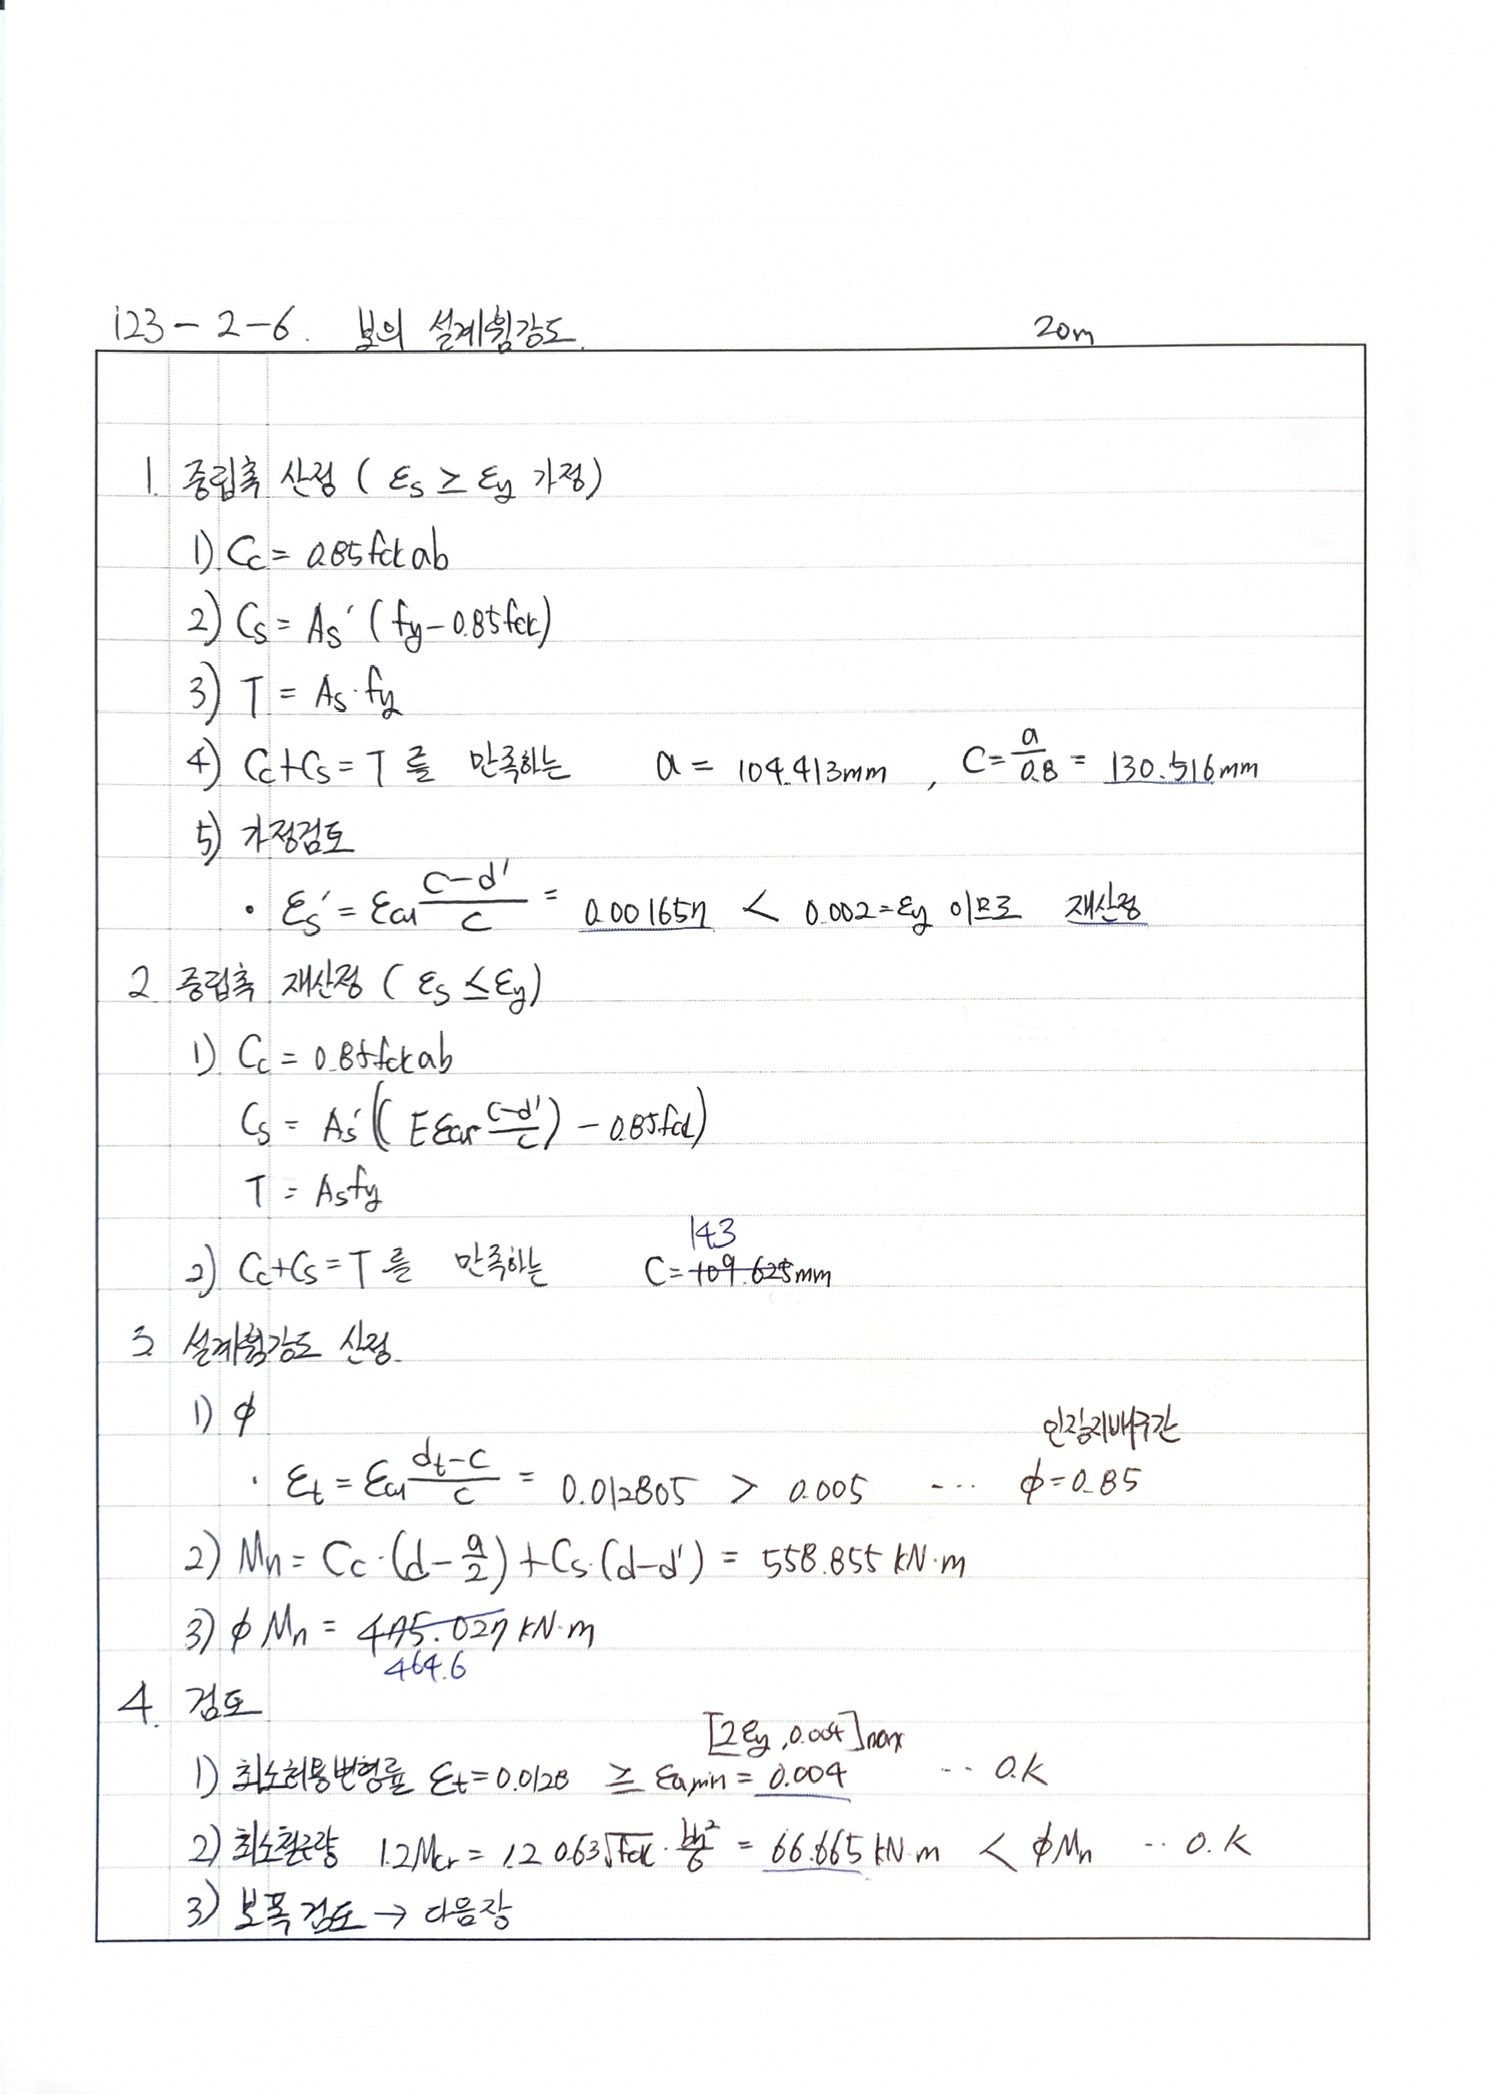 123-2-6. 보의 설계휨강도. 20m
1. 중립축 산정 ( εs ≥ εy 가정)
1) Cc = 0.85fck ab
2) Cs = As' (fy-0.85fck)
3) T = As·fy
4) Cc+Cs = T 를 만족하는 a = 104.413mm , C = a/0.8 = 130.516mm
5) 가정검토
• εs' = εcu (c-d')/c = 0.001657 < 0.002 = εy 이므로 재산정
2 중립축 재산정 ( εs ≤ εy)
1) Cc = 0.85fck ab
Cs = As' ((E εcu (c-d')/c) - 0.85fck)
T = Asfy
143
2) Cc+Cs = T 를 만족하는 C = 109.625mm
3 설계휨강도 산정.
1) φ 인장지배구간
· εt = εcu (dt-c)/c = 0.012805 > 0.005 ... φ=0.85
2) Mn = Cc·(d-a/2)+Cs·(d-d') = 558.855 kN·m
3) φMn = 475.027 kN·m
464.6
4. 검토
[2εy, 0.004]max
1) 최소허용변형률 εt=0.0128 ≥ εa,min = 0.004 ·· O.K
2) 최소철근량 1.2Mcr = 1.2 0.63√fck · bh²/6 = 66.665 kN·m < φMn ·· O.K
3) 보폭검토 → 다음장